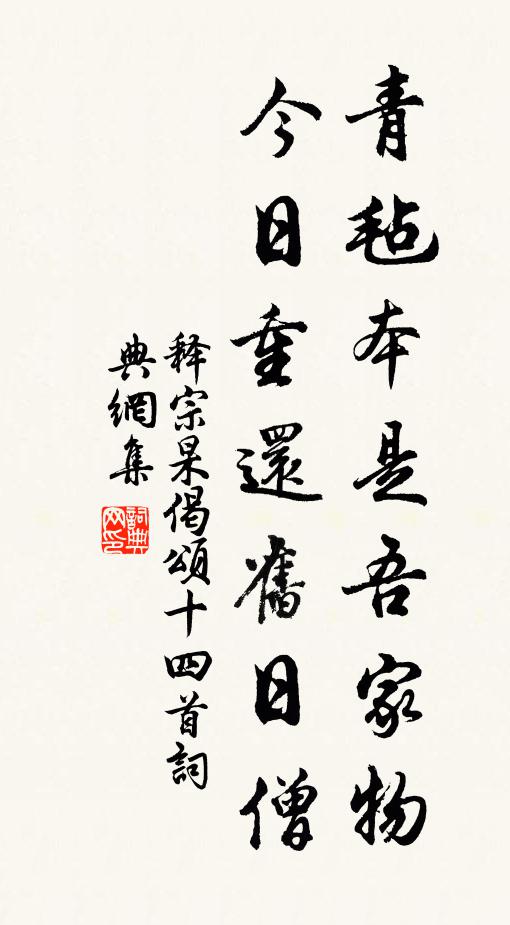 青毡本是吾家物
今日重還舊日僧
释宗杲偈頌十四首詞
典網集
詞典
网印